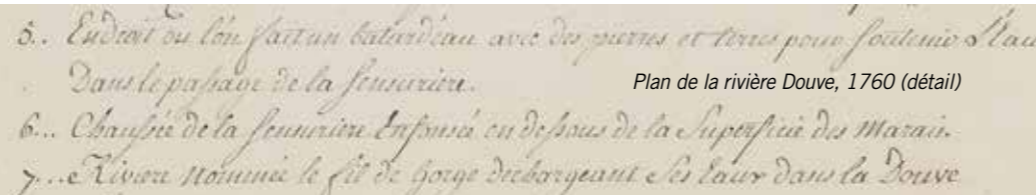 5.. Endroit ou l'on fait un batardeau avec des pierres et terres pour soutenir l'eau
Dans le passage de la Sensuriere.
Plan de la rivière Douve, 1760 (détail)
6... Chaussée de la Sensuriere Enfonsée en dessous de la Superficie des Marais.
7...Riviere Nommée le fil de Gorge dechargeant Ses Eaux dans la Douve